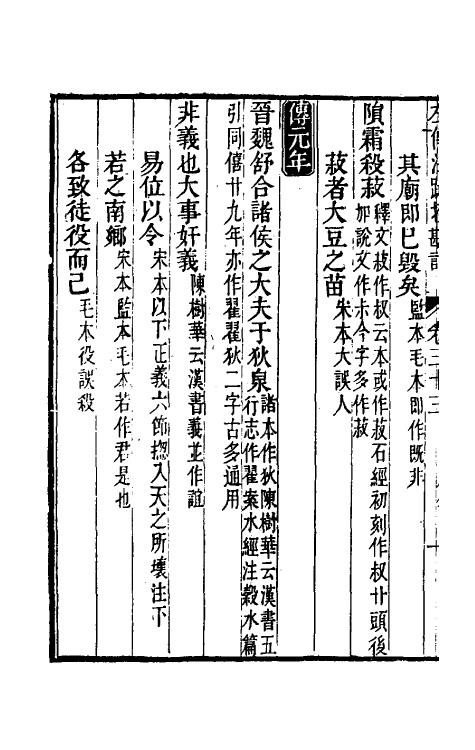 左傳注疏校勘記 卷三十三
其廟即巳毀矣 監本毛本即作既非
隕霜殺菽 釋文菽作叔云本或作菽石經初刻作叔卄頭後
加說文作尗今字多作菽
菽者大豆之苗 宋本大誤人
傳元年
晉魏舒合諸侯之大夫于狄泉 諸本作狄陳樹華云漢書五
行志作翟案水經注穀水篇
引同僖廿九年亦作翟翟狄二字古多通用
非義也大事奸義 陳樹華云漢書義並作誼
易位以令 宋本以下正義六節揔入天之所壞注下
若之南鄉 宋本監本毛本若作君是也
各致徒役而己 毛本役誤殺